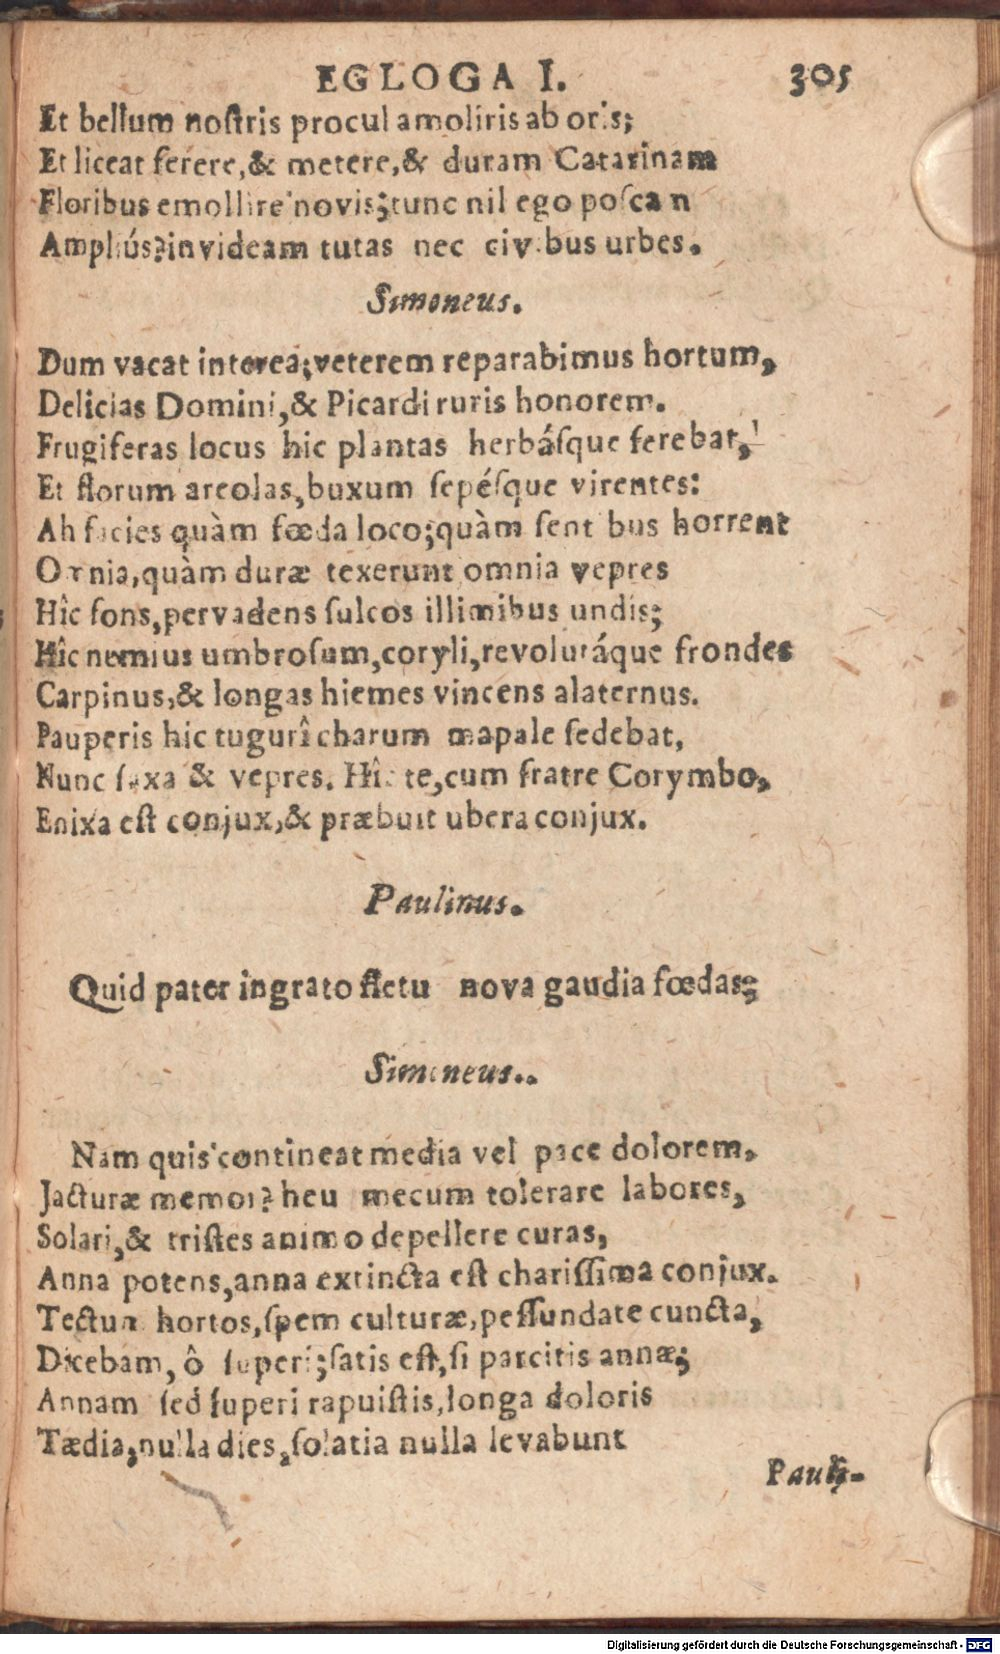 EGLOGA I. 305
Et bellum nostris procul amoliris ab oris;
Et liceat serere, & metere, & duram Catarinam
Floribus emollire novis; tunc nil ego poscan
Ampliús? invideam tutas nec civibus urbes.
Simoneus.
Dum vacat interea; veterem reparabimus hortum,
Delicias Domini, & Picardi ruris honorem.
Frugiferas locus hic plantas herbásque ferebat,
Et florum areolas, buxum sepésque virentes:
Ah facies quàm fœda loco; quàm sentibus horrent
Omnia, quàm duræ texerunt omnia vepres
Hîc fons, pervadens sulcos illimibus undis;
Hîc nemius umbrosum, coryli, revolutáque frondes
Carpinus, & longas hiemes vincens alaternus.
Pauperis hic tugurî charum mapale sedebat,
Nunc saxa & vepres. Hîc te, cum fratre Corymbo,
Enixa est conjux, & præbuit ubera conjux.
Paulinus.
Quid pater ingrato fletu nova gaudia fœdas;
Simoneus..
Nam quis contineat media vel pace dolorem,
Jacturæ memor? heu mecum tolerare labores,
Solari, & tristes animo depellere curas,
Anna potens, anna extincta est charissima conjux.
Tectum hortos, spem culturæ, pessundate cuncta,
Dicebam, ô superi; satis est, si parcitis annæ;
Annam sed superi rapuistis, longa doloris
Tædia, nulla dies, solatia nulla levabunt
Pauli-
Digitalisierung gefördert durch die Deutsche Forschungsgemeinschaft - DFG